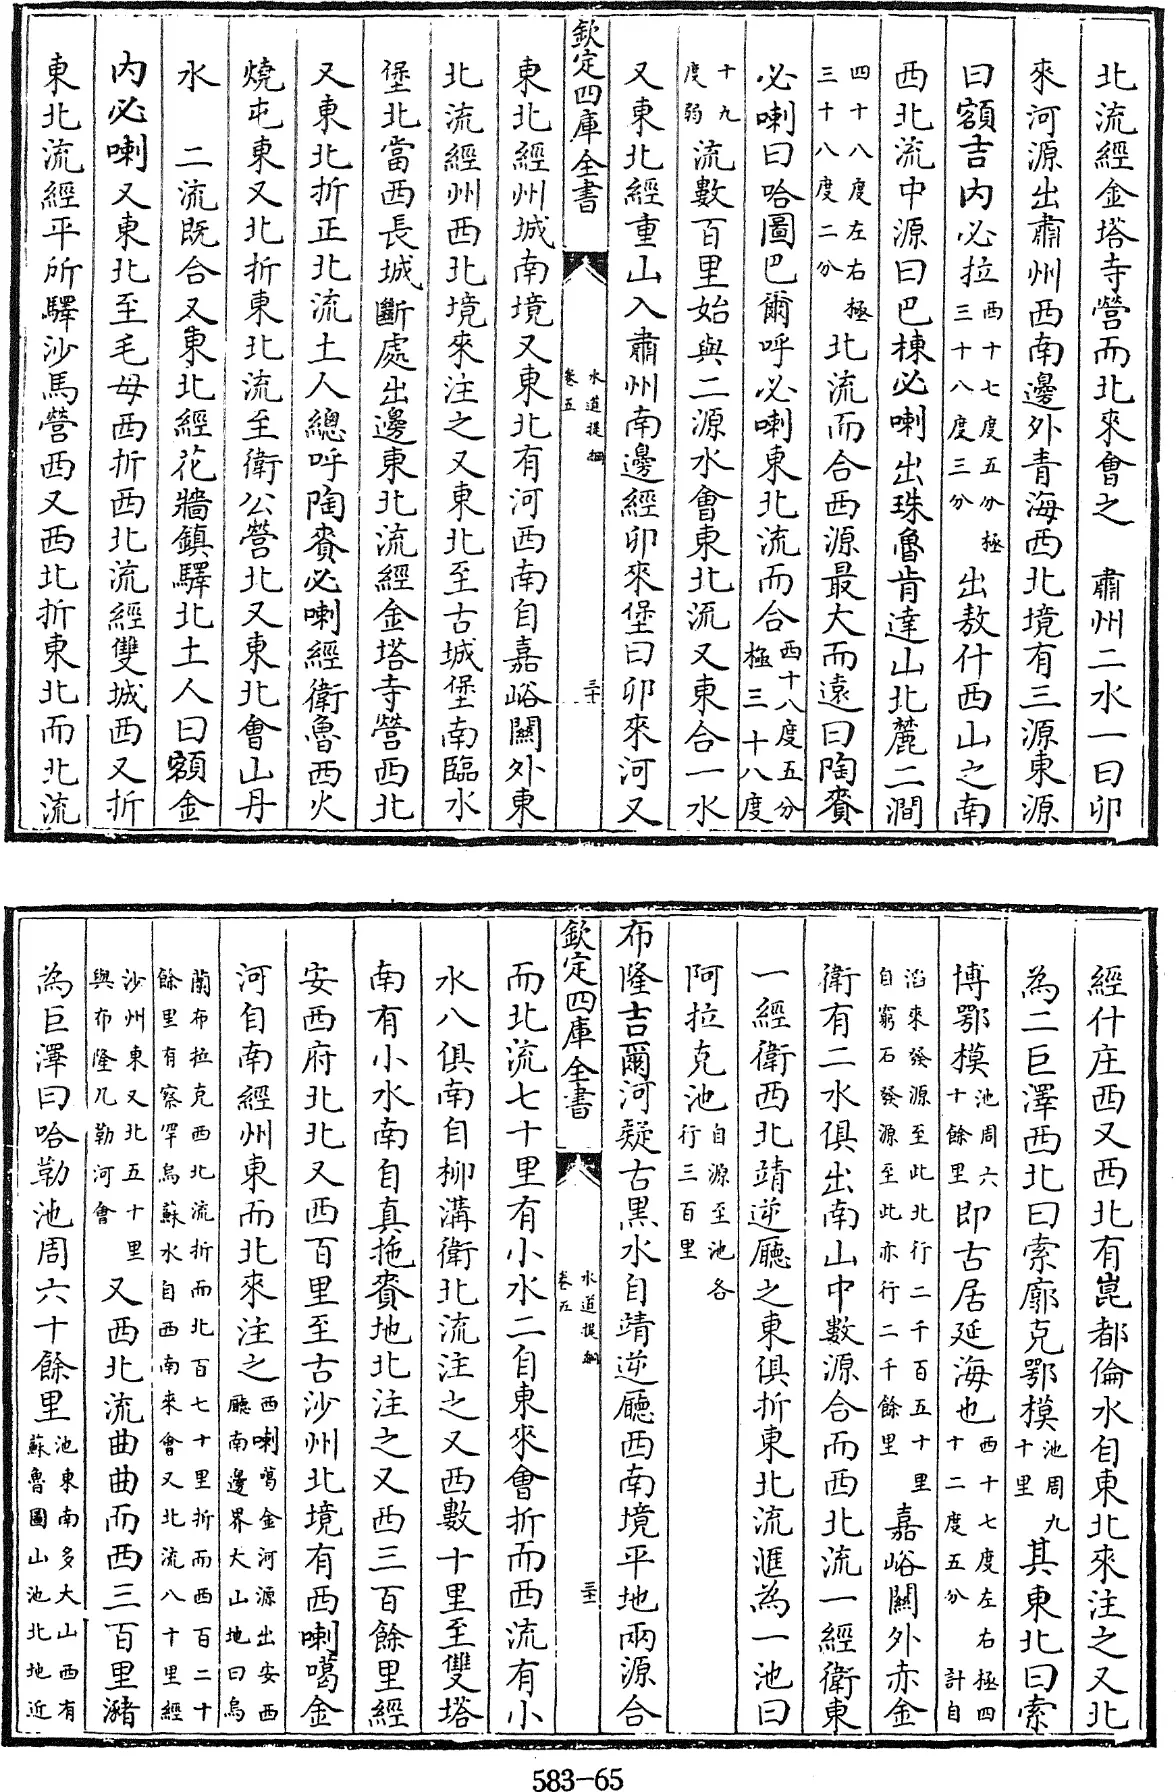 北流經金塔寺營而北來會之　肅州二水一曰卯
來河源出肅州西南邊外青海西北境有三源東源
曰額吉内必拉西十七度五分極三十八度三分出敖什西山之南
西北流中源曰巴棟必喇出珠魯肯達山北麓二澗
四十八度左右極三十八度二分北流而合西源最大而遠曰陶賚
必喇曰哈圖巴爾呼必喇東北流而合西十八度五分極三十八度
十九度弱流數百里始與二源水會東北流又東合一水
又東北經重山入肅州南邊經卯來堡曰卯來河又
欽定四庫全書
水道提綱
卷五
三十
東北經州城南境又東北有河西南自嘉峪關外東
北流經州西北境來注之又東北至古城堡南臨水
堡北當西長城斷處出邊東北流經金塔寺營西北
又東北折正北流土人總呼陶賚必喇經衛魯西火
燒屯東又北折東北流至衛公營北又東北會山丹
水　二流既合又東北經花牆鎮驛北土人曰額金
内必喇又東北至毛毋西折西北流經雙城西又折
東北流經平所驛沙馬營西又西北折東北而北流
經什庄西又西北有崑都倫水自東北來注之又北
為二巨澤西北曰索廓克鄂模池周九十里其東北曰索
博鄂模池周六十餘里即古居延海也西十七度左右極四十二度五分　計自
滔來發源至此北行二千百五十里自窮石發源至此亦行二千餘里嘉峪關外赤金
衛有二水俱出南山中數源合而西北流一經衛東
一經衛西北靖逆廳之東俱折東北流滙為一池曰
阿拉克池自源至池各行三百里
布隆吉爾河疑古黑水自靖逆廳西南境平地兩源合
欽定四庫全書
水道提綱
卷五
三十一
而北流七十里有小水二自東來會折而西流有小
水八俱南自柳溝衛北流注之又西數十里至雙塔
南有小水南自真拖賚地北注之又西三百餘里經
安西府北北又西百里至古沙州北境有西喇噶金
河自南經州東而北來注之西喇噶金河源出安西廳南邊界大山地曰烏
蘭布拉克西北流折而北百七十里折而西百二十餘里有察罕烏蘇水自西南來會又北流八十里經
沙州東又北五十里與布隆几勒河會又西北流曲曲而西三百里瀦
為巨澤曰哈勒池周六十餘里池東南多大山西有蘇魯圖山池北地近
583-65